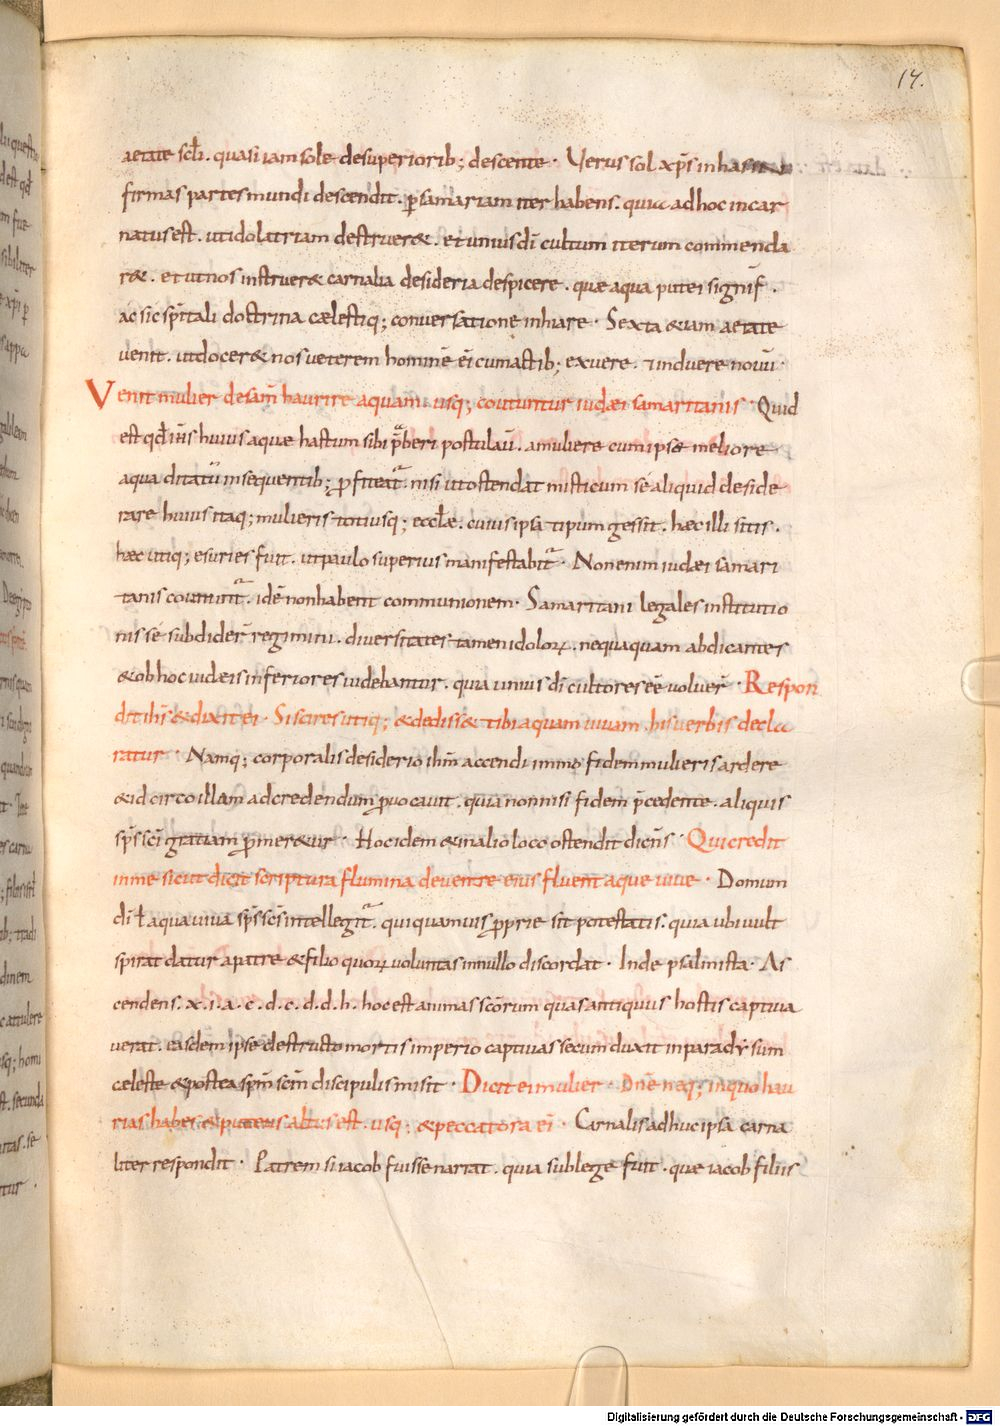 17.
aetate scłi. quasi iam sole desuperiorib; descente. Verus sol xp̄s in has in
firmas partes mundi descendit. ꝑ samariam iter habens. quia ad hoc incar
natus est. ut idolatriam destruer&. et unius dī cultum iterum commenda
r&. et ut nos instruer& carnalia desideria despicere. quae aqua putei signif̄.
ac sic sp̄itali doctrina caelestiq; conuersatione inhiare. Sexta &iam aetate
uenit. ut docer& nos ueterem hominē cū actib; exuere. & induere nouū.
Venit mulier de sam̄ haurire aquam. usq; coutuntur iudaei samaritanis. Quid
est qđ ih̄s huius aquae haustum sibi p̄beri postulau̅. a muliere cum ipse meliore
aqua ditatū in sequentib; ꝓfiteat̄. nisi ut ostendat misticum se aliquid deside
rare huius itaq; mulieris totiusq; eccłae. cuius ipsa tipum gessit. haec illi sitis.
haec utiq; esuries fuit. ut paulo superius manifestabit̄. Non enim iudaei samari
tanis coutunt̄. idē non habent communionem. Samaritani legales institutio
nis se subdider̄ regimini. diuersitates tamen idoloꝝ. nequaquam abdicantes
& ob hoc iudaeis inferiores uidebantur. quia unius dī cultores eē uoluer̄. Respon
dit ih̄s & dixit ei. Si scires utiq; & dediss& tibi aquam uiuam. his uerbis decla
ratur. Namq; corporalis desiderio ih̄m accendi immo fidem mulieris ardere
& idcirco illam ad credendum ꝓuocauit. quia non nisi fidem p̄cedente. aliquis
sp̄s sc̄i gratiam ꝓmer&ur. Hoc idem & in alio loco ostendit dicēs. Qui credit
in me sicut dicit scriptura flumina de uentre eius fluent aque uiue. Domum
dī ł aqua uiua sp̄s sc̄s intellegit̄. qui quamuis ꝓprie sit potestatis. quia ubi uult
spirat datur a patre & filio quoꝝ uoluntas in nullo discordat. Inde psalmista. As
cendens. x. i. a. c. d. c. d. d. h. hoc est animas scōrum quas antiquus hostis captiua
uerat. easdem ipse destructo mortis imperio captiuas secum duxit in paradysum
caeleste & postea sp̄m sc̄m discipulis misit. Dicit ei mulier. Dn̄e neq; in quo hau
rias habes. & puteus altus est. usq; & peccatora ei. Carnalis adhuc ipsa carna
liter respondit. Patrem si iacob fuisse narrat. quia sub lege fuit. quae iacob filiis
Digitalisierung gefördert durch die Deutsche Forschungsgemeinschaft - DFG